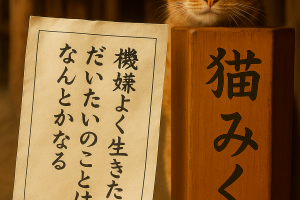 機嫌よく生きた
だいたいのことは
なんとかなる
猫みく